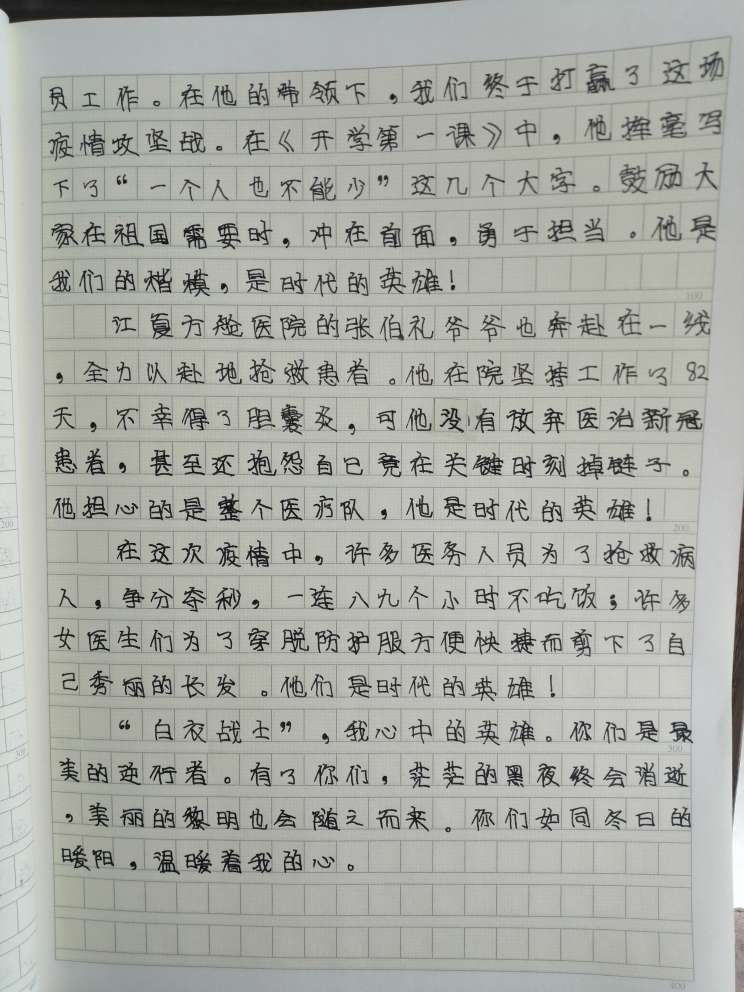 员工作。在他的带领下，我们终于打赢了这场
疫情攻坚战。在《开学第一课》中，他挥毫写
下了“一个人也不能少”这几个大字。鼓励大
家在祖国需要时，冲在前面，勇于担当。他是
我们的楷模，是时代的英雄！
100
江夏方舱医院的张伯礼爷爷也奔赴在一线
，全力以赴地抢救患者。他在院坚持工作了82
天，不幸得了胆囊炎，可他没有放弃医治新冠
患者，甚至还抱怨自己竟在关键时刻掉链子。
他担心的是整个医疗队，他是时代的英雄！
200
在这次疫情中，许多医务人员为了抢救病
人，争分夺秒，一连八九个小时不吃饭；许多
女医生们为了穿脱防护服方便快捷而剪下了自
己秀丽的长发。他们是时代的英雄！
“白衣战士”，我心中的英雄。你们是最
300
美的逆行者。有了你们，茫茫的黑夜终会消逝
，美丽的黎明也会随之而来。你们如同冬日的
暖阳，温暖着我的心。
400
200
300